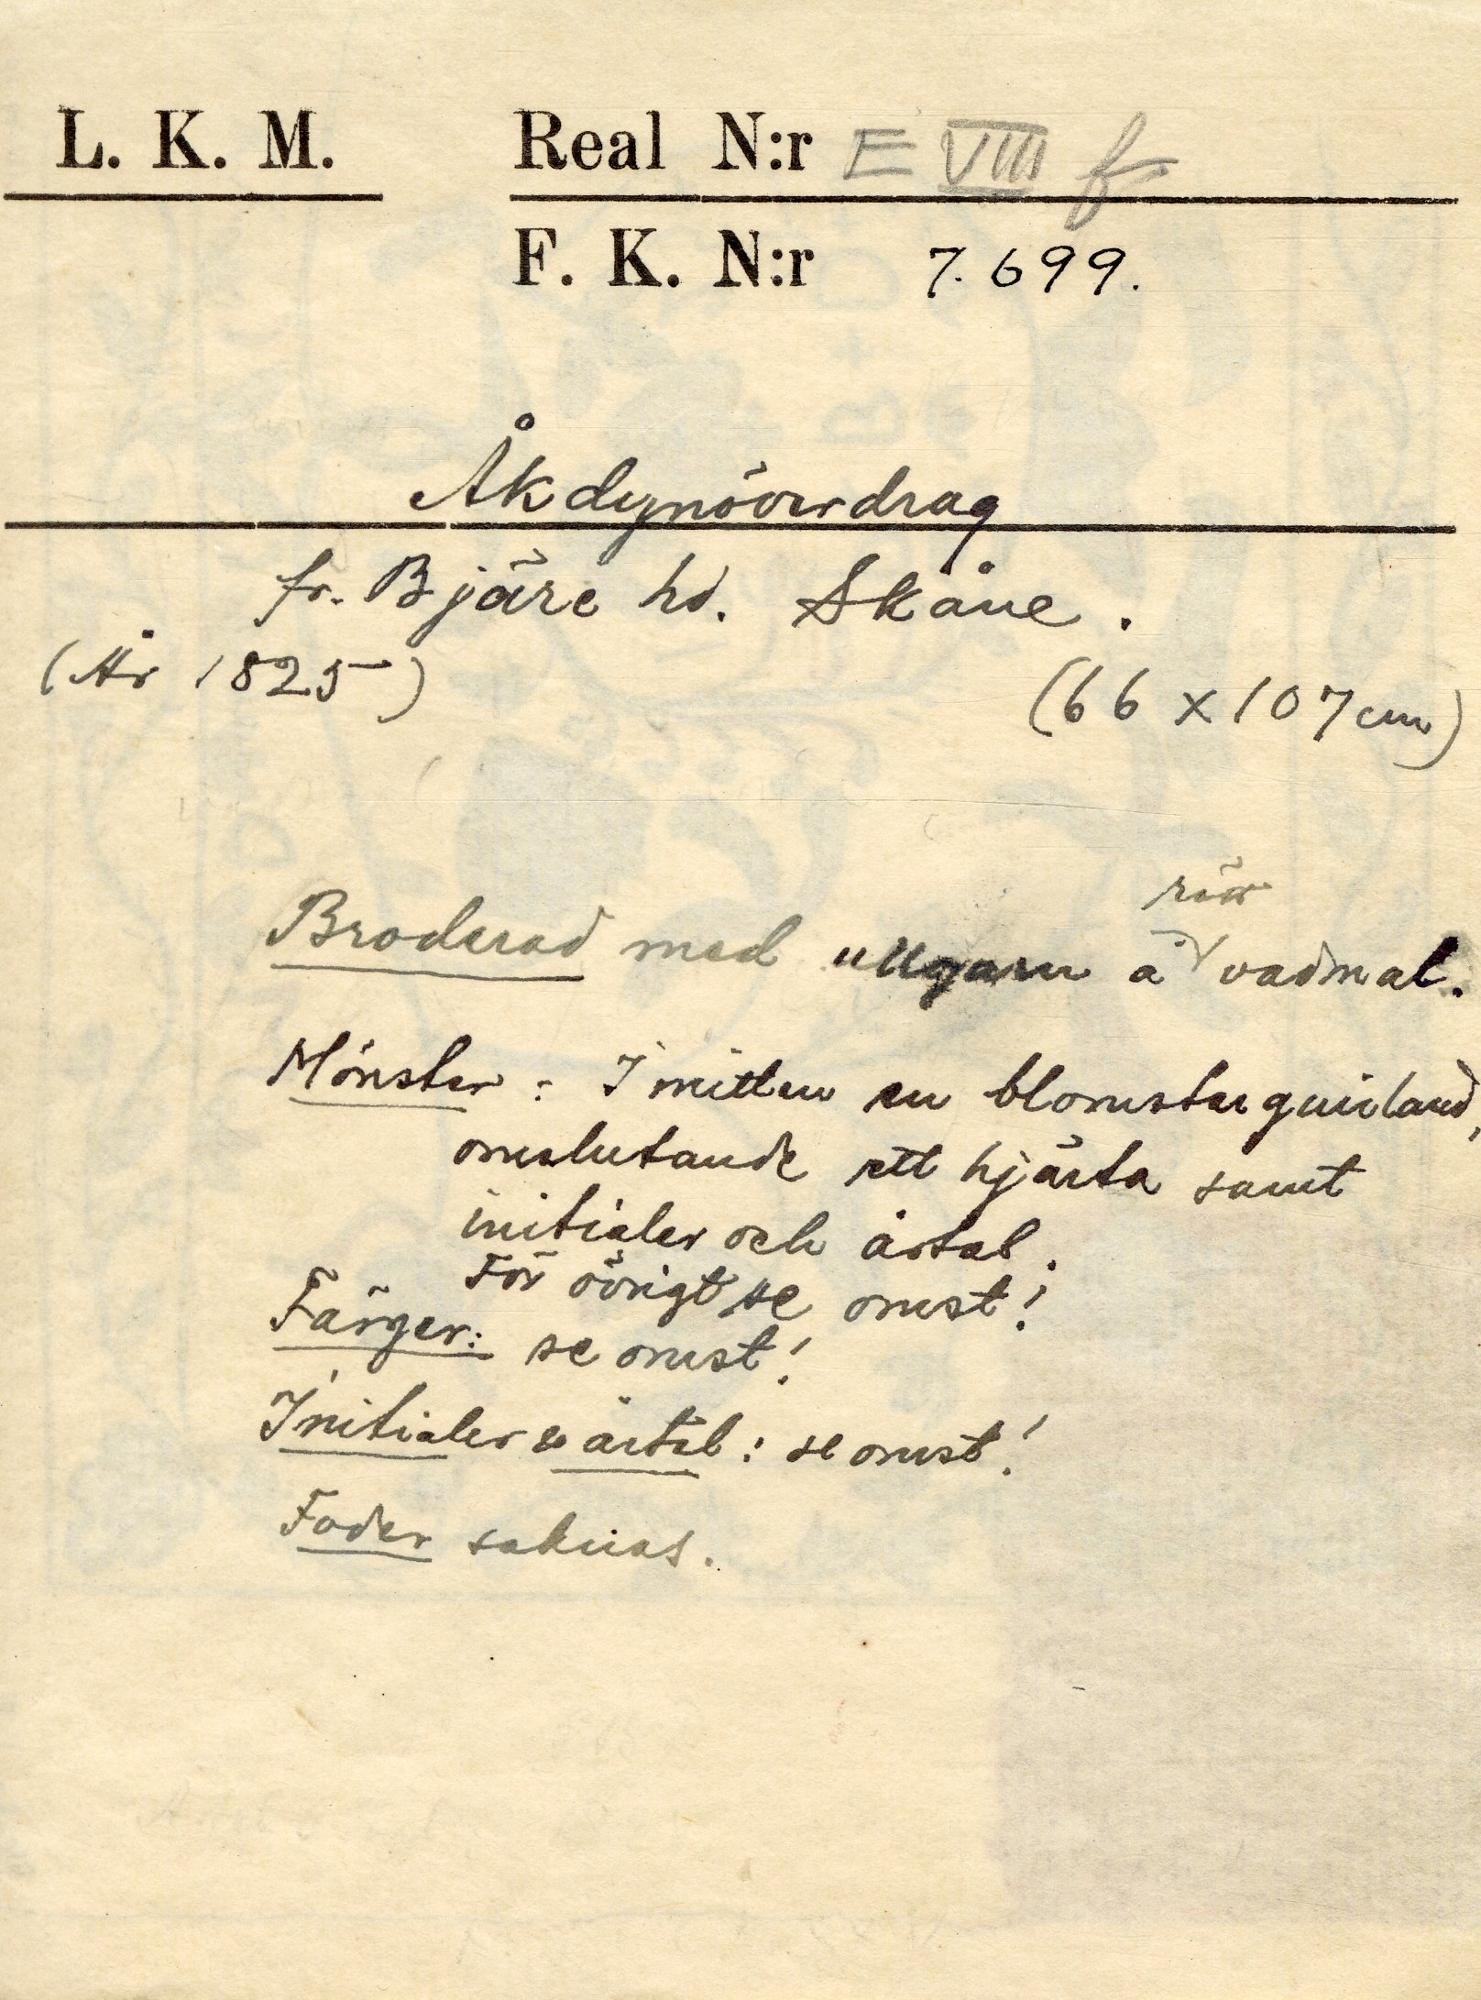 L. K. M. Real N:r E VIII f
F. K. N:r 7.699.
Åkdynöverdrag
fr. Bjäre hd. Skåne.
(År 1825) (66 x 107 cm)
röd
Broderad med ullgarn å vadmal.
Mönster: I mitten en blomsterguirland,
omslutande ett hjärta samt
initialer och årtal.
För övrigt se omst!
Färger: se omst!
Initialer & årtal: se omst!
Foder saknas.